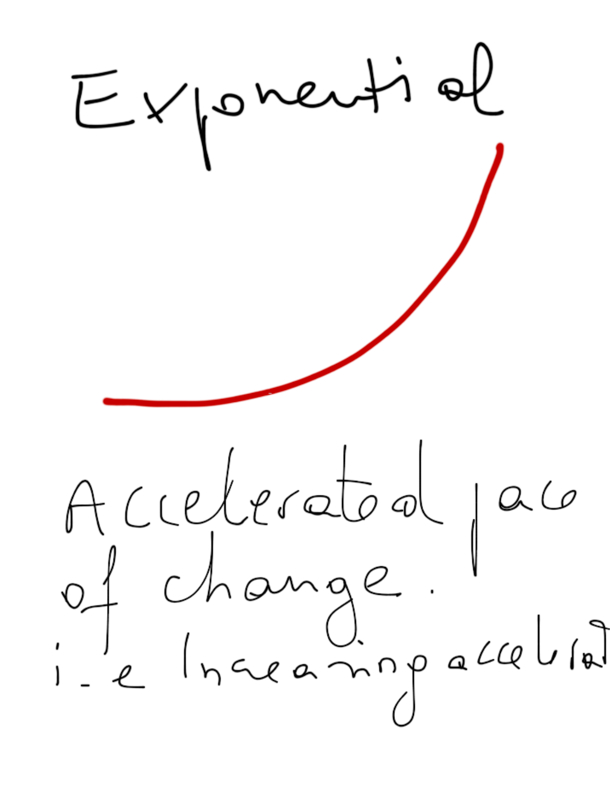 Exponential
Accelerated pace
of change.
i-e Increasing accelerat